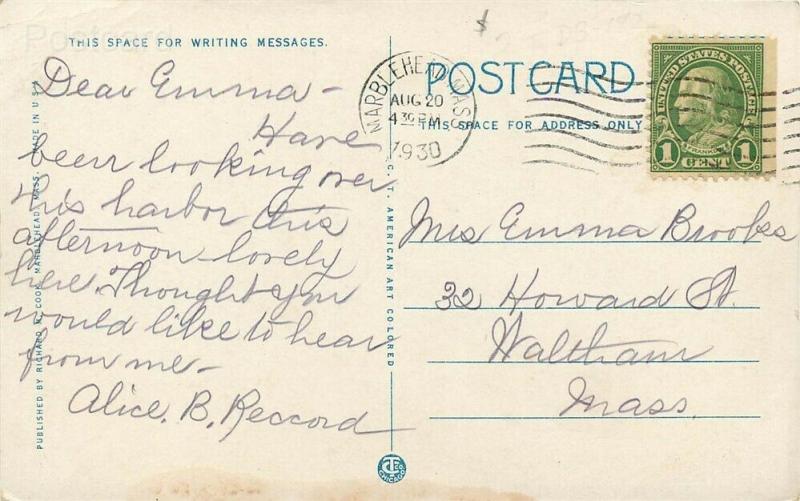 Postcard
THIS SPACE FOR WRITING MESSAGES.
Dear Emma –
Have
been looking over
this harbor this
afternoon – lovely
here. Thought you
would like to hear
from me –
Alice. B. Reccord
PUBLISHED BY RICHARD W. COOK, MARBLEHEAD, MASS. MADE IN U.S.A.
C. T. AMERICAN ART COLORED
POSTCARD
THIS SPACE FOR ADDRESS ONLY
MARBLEHEAD MASS
AUG 20
4 30 PM
1930
UNITED STATES POSTAGE
FRANKLIN
1 CENT 1
Mrs Emma Brooks
32 Howard St.
Waltham
Mass.
CT CO
CHICAGO